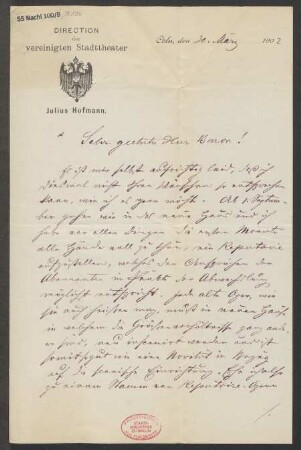 55 Nachl 100/B
DIRECTION
der
vereinigten Stadttheater
Cöln, den 20. März 1902
Julius Hofmann.
Sehr geehrter Herr Baron!
Es ist mir selbst aufrichtig leid, daß ich
diesmal nicht Ihren Wünschen so entsprechen
kann, wie ich es gern möchte. Ab 1. Septem-
ber gehen wir in das neue Haus und ich
habe vor allen Dingen die ersten Monate
alle Hände voll zu thun, ein Repertoire
aufzustellen, welches den Ansprüchen der
Abonnenten in Punkto der Abwechslung
möglichst entspricht. Jede alte Oper, wie
sie auch heißen mag, muß im neuen Haus
in welchem die Größenverhältnisse ganz ande-
re sind, neu inscenirt werden und ist
somit so gut wie eine Novität in Bezug
auf die scenische Einrichtung. Ehe ich also
zu einem Stamm von Repertoire-Opern